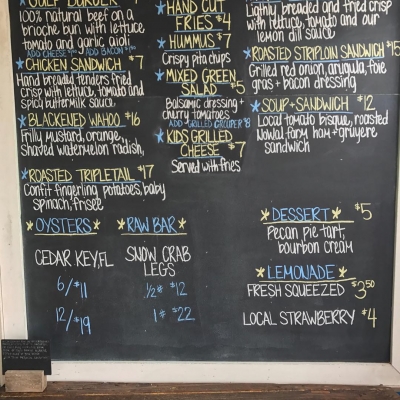 GULF BURGER $
100% natural beef on a
brioche bun with lettuce
tomato and garlic aioli
ADD
ADD BACON $1
CHICKEN SANDWICH $7
Hand breaded tenders fried
crisp with lettuce, tomato and
spicy buttermilk sauce
BLACKENED WAHOO $16
Frilly mustard, orange,
shaved watermelon radish,
ROASTED TRIPLETAIL $17
Confit fingerling potatoes, baby
spinach, frisee
OYSTERS
CEDAR KEY, FL
6/$11
12/$19
HAND CUT
FRIES $4
HUMMUS $7
Crispy pita chips
MIXED GREEN
SALAD $5
Balsamic dressing +
cherry tomatoes
ADD GRILLED GROUPER $8
KIDS GRILLED
CHEESE $7
Served with fries
RAW BAR
SNOW CRAB
LEGS
1/2# $12
1# $22
Lightly breaded and fried crisp
with lettuce, tomato and our
lemon dill sauce
ROASTED STRIPLOIN SANDWICH $15
Grilled red onion, arugula, foie
gras + bacon dressing
SOUP + SANDWICH $12
Local tomato bisque, roasted
Nowal farm ham + gruyere
sandwich
DESSERT $5
Pecan pie tart,
bourbon cream
LEMONADE
FRESH SQUEEZED $3.50
LOCAL STRAWBERRY $4